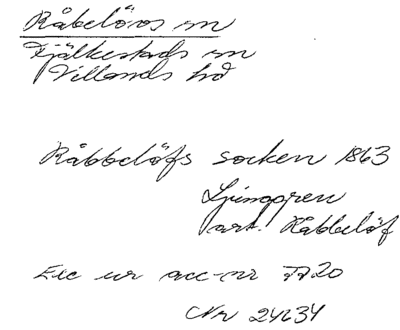 Råbelövs sn
Fjälkestads sn
Villands hd
Råbbelöfs socken 1863
Ljunggren
art. Råbbelöf
Exc ur acc-nr 7720
Nr 24634